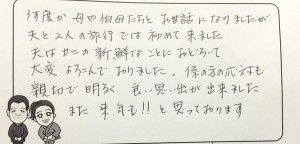 何度か母や伯母たちとお世話になりましたが
夫と2人の旅行では初めて来ました
夫はカニの新鮮なことにおどろいて
大変よろこんでおりました。係の方の応対も
親切で明るく良い思い出が出来ました
また来年も!!と思っております